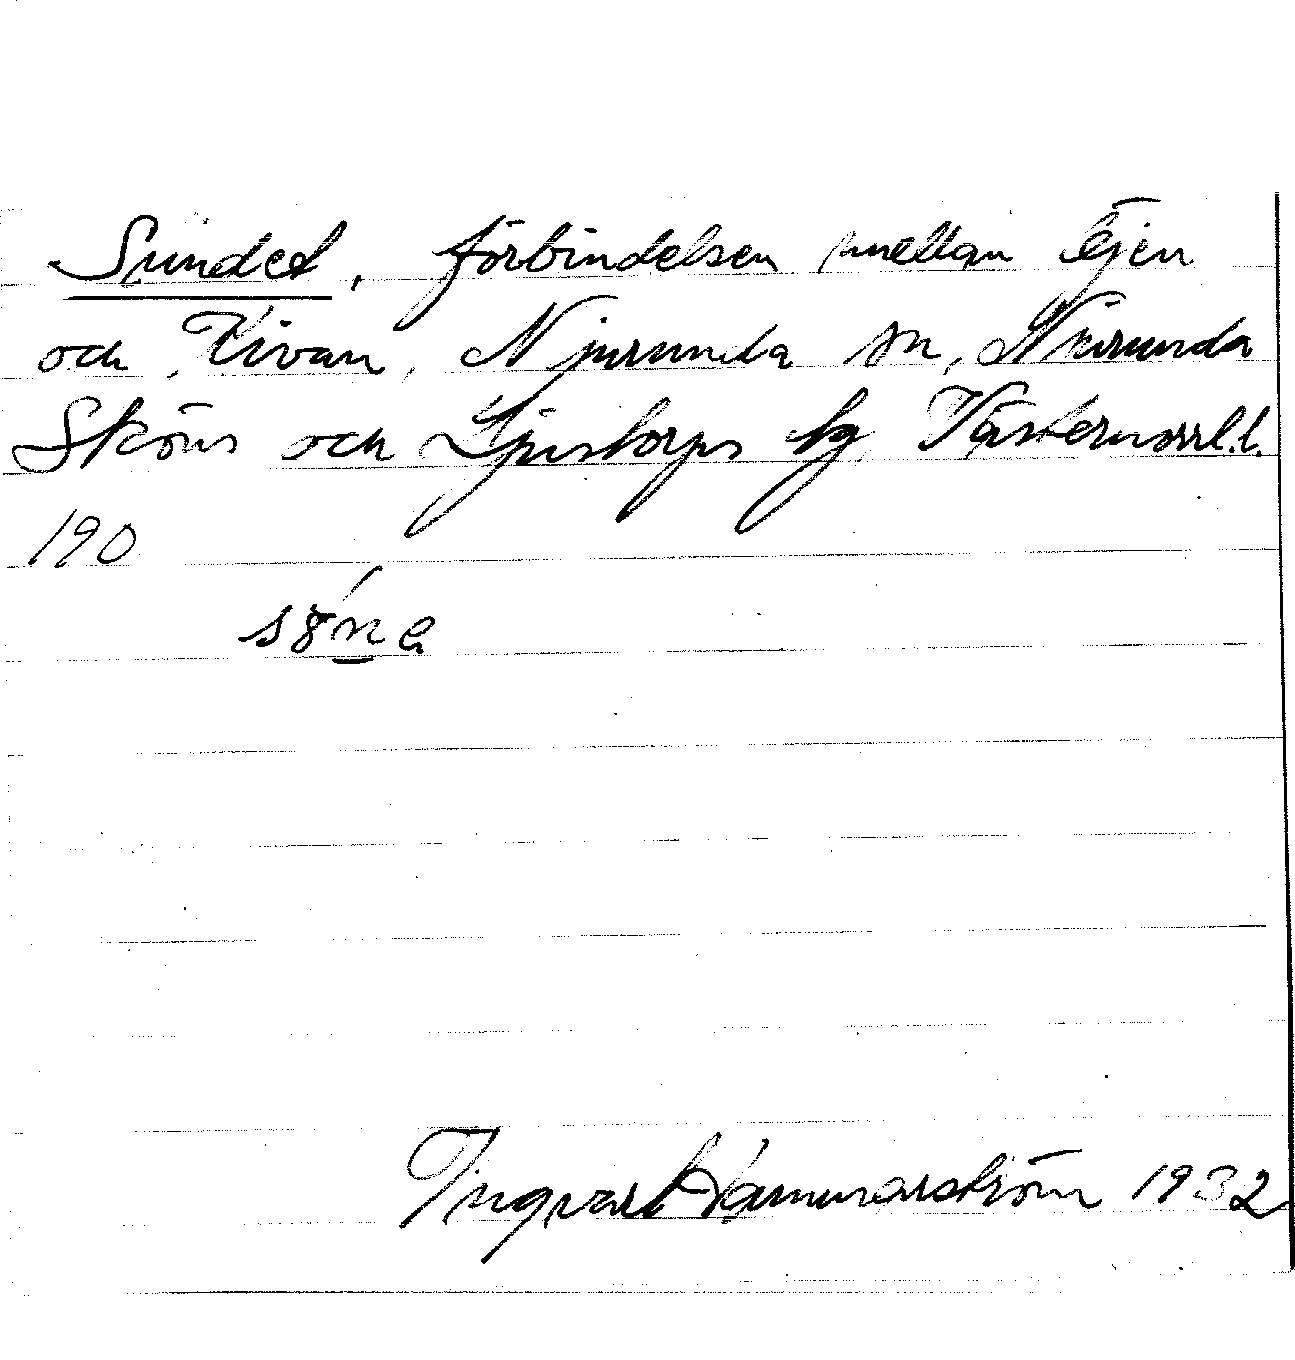 Sundet, förbindelsen mellan
och Vivan, Njurunda sn, Njurunda
Sköns och Ljustorps tg Västernorrl.l.
190
Ingvart Hammarström 1932